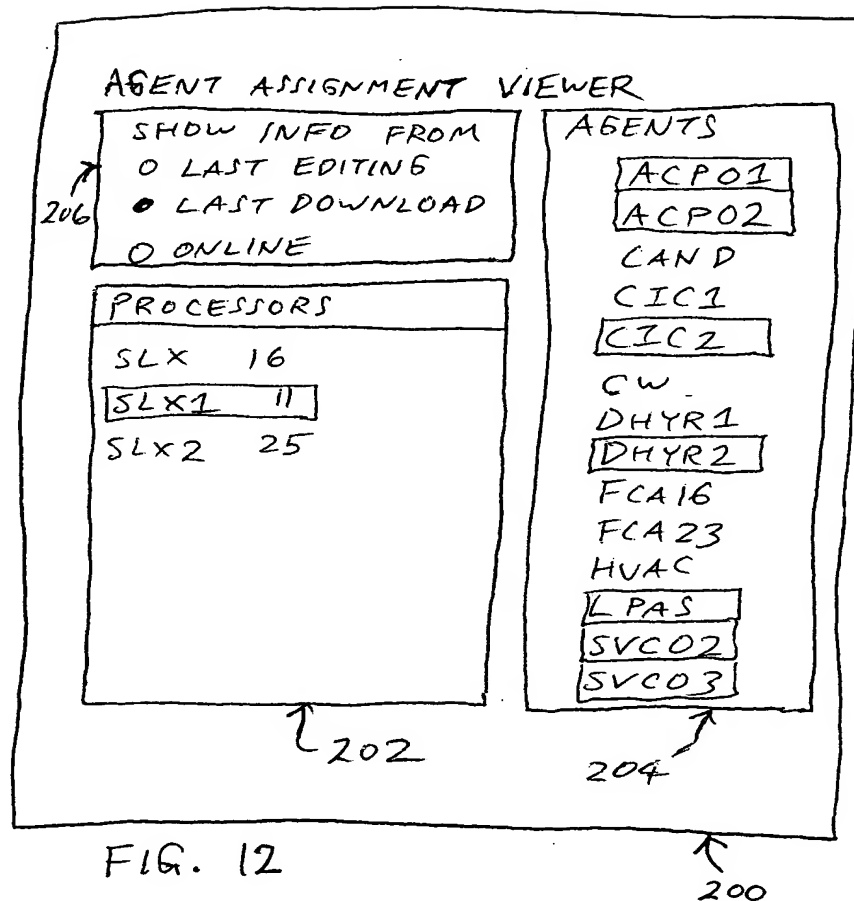 AGENT ASSIGNMENT VIEWER
SHOW INFO FROM
LAST EDITING
LAST DOWNLOAD
ONLINE
206
PROCESSORS
SLX 16
SLX1 11
SLX2 25
202
AGENTS
ACPO1
ACPO2
CAND
CIC1
CIC2
CW
DHYR1
DHYR2
FCA16
FCA23
HVAC
LPAS
SVCO2
SVCO3
204
FIG. 12
200